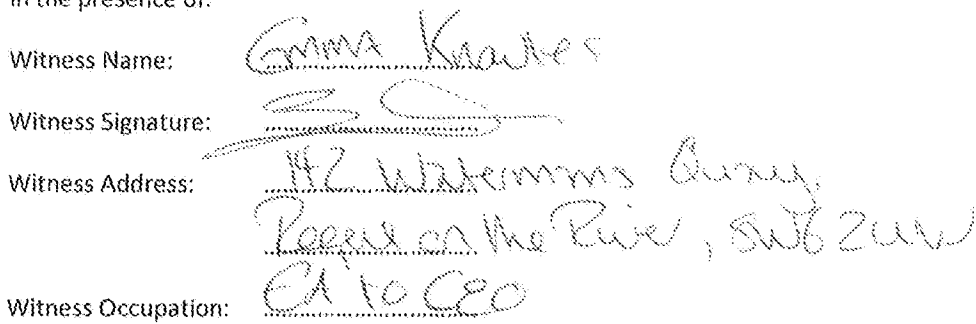 in the presence of:
Witness Name: Emma Knowles
Witness Signature:
Witness Address: 142 Watermans Quay,
Regent on the River, SW6 2UW
Witness Occupation: EA to CEO